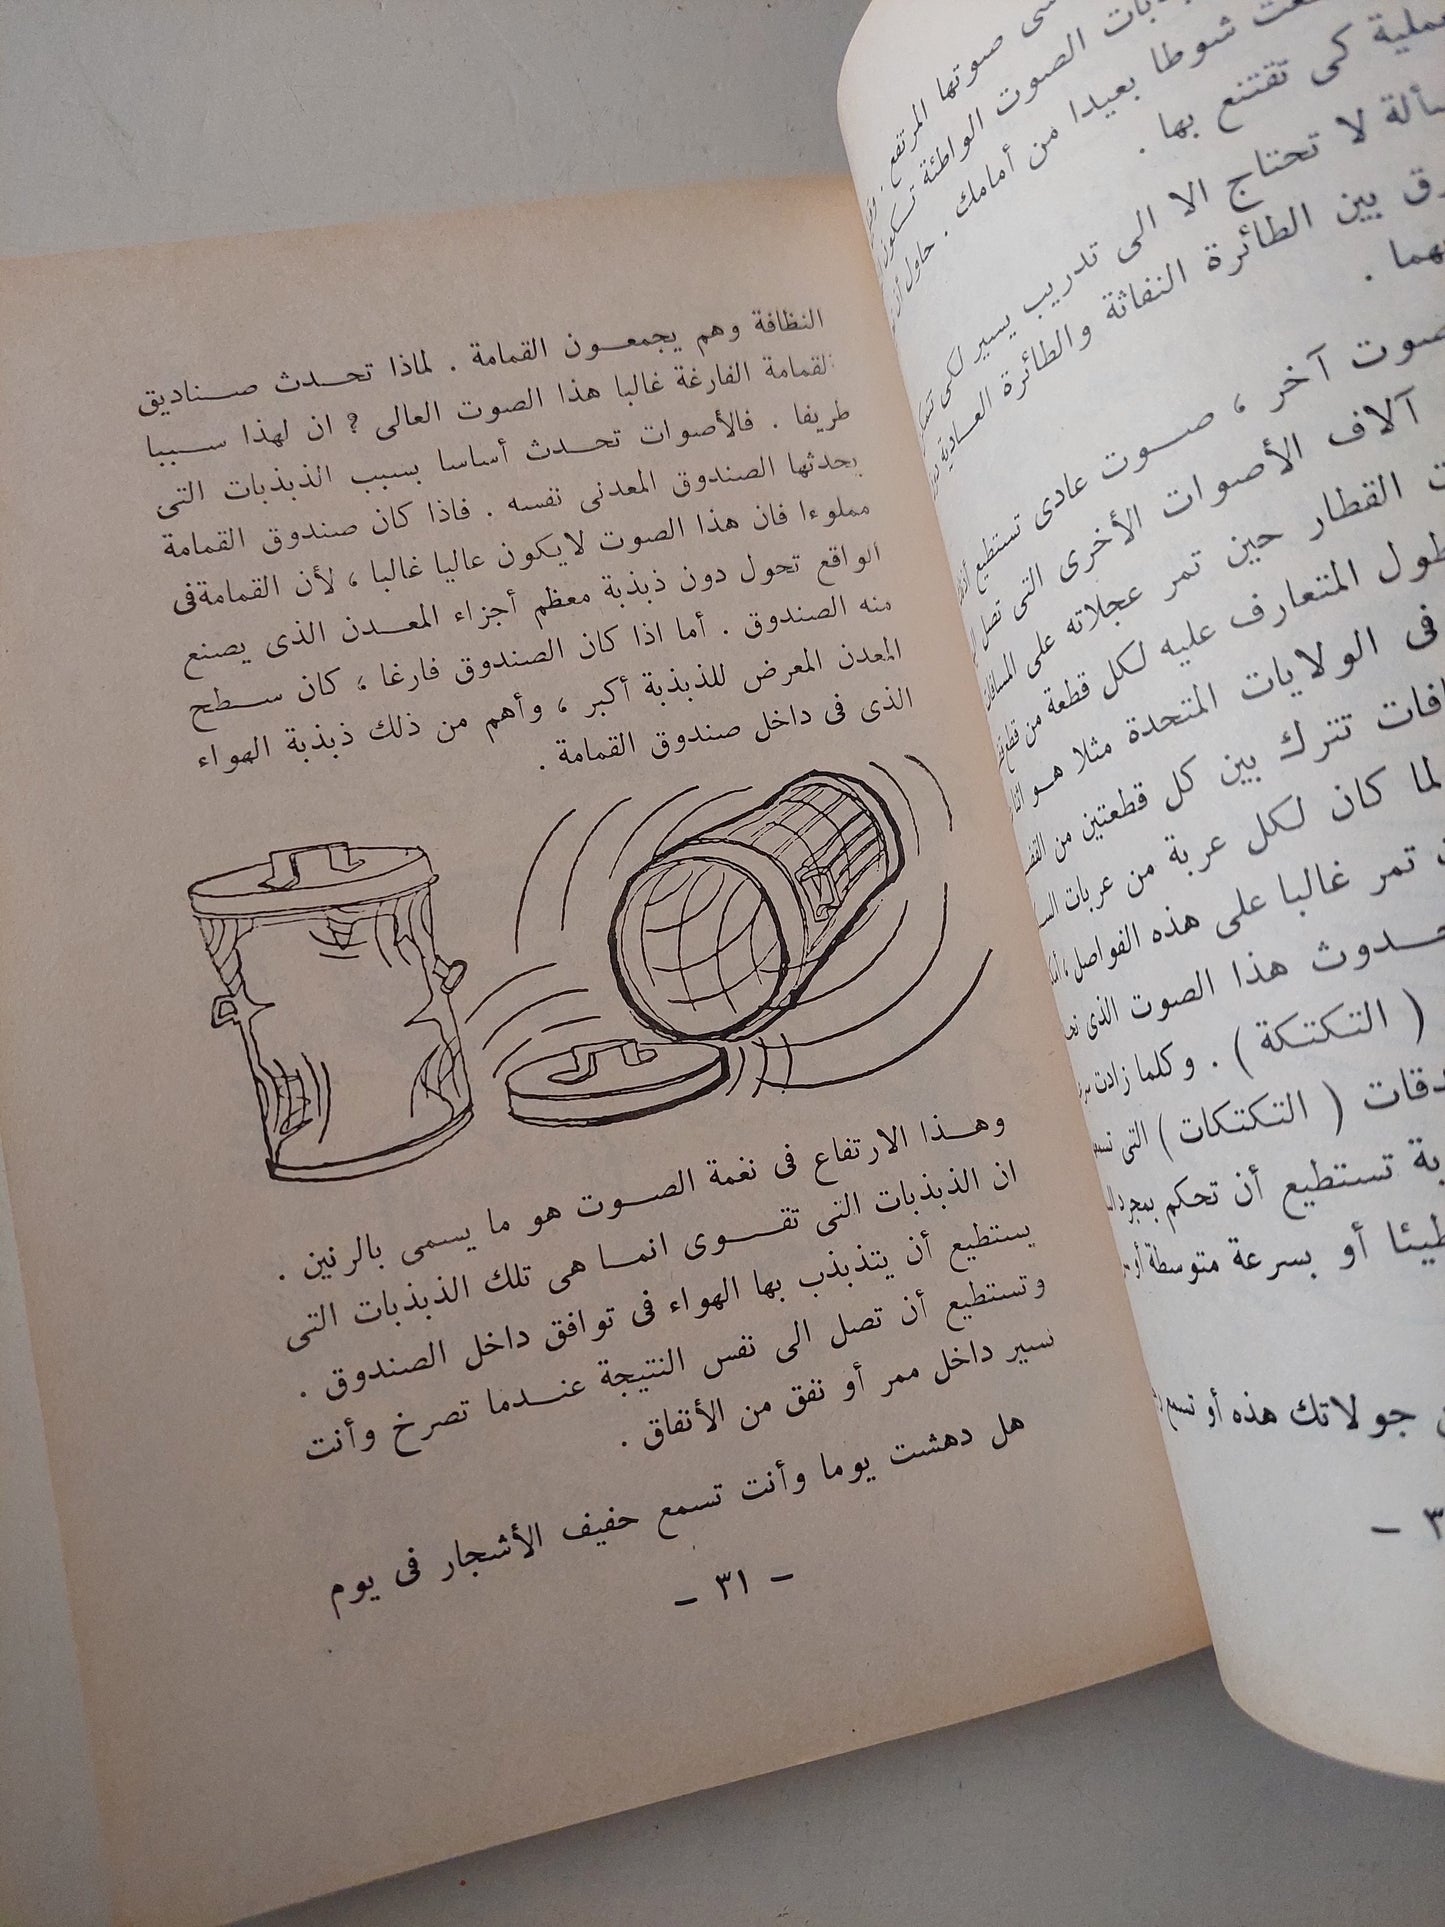 النظافة وهم يجمعون القمامة . لماذا تحدث صناديق
القمامة الفارغة غالبا هذا الصوت العالى ? ان لهذا سببا
طريفا . فالأصوات تحدث أساسا بسبب الذبذبات التى
يحدثها الصندوق المعدنى نفسه . فاذا كان صندوق القمامة
مملوءا فان هذا الصوت لايكون عاليا غالبا ، لأن القمامة فى
الواقع تحول دون ذبذبة معظم أجزاء المعدن الذى يصنع
منه الصندوق . أما اذا كان الصندوق فارغا ، كان سطح
المعدن المعرض للذبذبة أكبر ، وأهم من ذلك ذبذبة الهواء
الذى فى داخل صندوق القمامة .
وهذا الارتفاع فى نغمة الصوت هو ما يسمى بالرنين .
ان الذبذبات التى تقوى انما هى تلك الذبذبات التى
يستطيع أن يتذبذب بها الهواء فى توافق داخل الصندوق .
وتستطيع أن تصل الى نفس النتيجة عندما تصرخ وأنت
تسير داخل ممر أو نفق من الأنفاق .
هل دهشت يوما وأنت تسمع حفيف الأشجار فى يوم
– ٣١ –
صوتها المرتفع .
الصوت الواطئة تكون
شوطا بعيدا من أمامك . حاول أن
كى تقتنع بها .
لا تحتاج الا الى تدريب يسير لكى
بين الطائرة النفاثة والطائرة العادية
آخر ، صوت عادى تستطيع
آلاف الأصوات الأخرى التى تصل
القطار حين تمر عجلاته على
المتعارف عليه لكل قطعة من
فى الولايات المتحدة مثلا هو
تترك بين كل قطعتين من
كان لكل عربة من عربات
تمر غالبا على هذه الفواصل ،
هذا الصوت الذى
( التكتكة ) . وكلما زادت
( التكتكات ) التى
تستطيع أن تحكم بمجرد
أو بسرعة متوسطة أو
جولاتك هذه أو تسمع